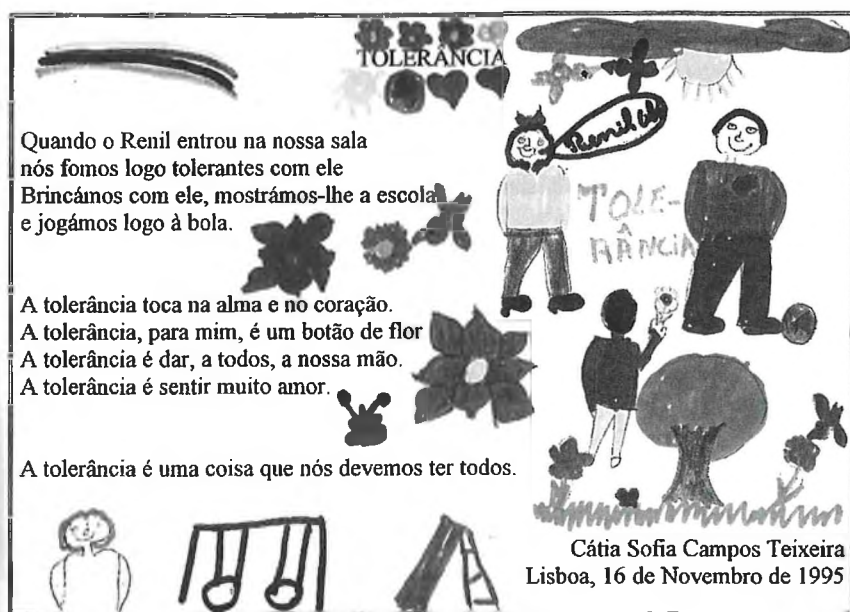 TOLERÂNCIA
Quando o Renil entrou na nossa sala
nós fomos logo tolerantes com ele
Brincámos com ele, mostrámos-lhe a escola
e jogámos logo à bola.
A tolerância toca na alma e no coração.
A tolerância, para mim, é um botão de flor
A tolerância é dar, a todos, a nossa mão.
A tolerância é sentir muito amor.
A tolerância é uma coisa que nós devemos ter todos.
Renil
TOLE-
RÂNCIA
Cátia Sofia Campos Teixeira
Lisboa, 16 de Novembro de 1995